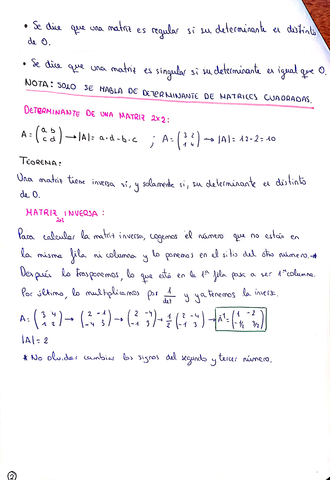 • Se dice que una matriz es regular si su determinante es distinto
de 0.
• Se dice que una matriz es singular si su determinante es igual que 0.
NOTA: SOLO SE HABLA DE DETERMINANTE DE MATRICES CUADRADAS.
DETERMINANTE DE UNA MATRIZ 2x2:
A = (a b / c d) → |A| = a·d - b·c ; A = (3 2 / 1 4) → |A| = 12 - 2 = 10
TEOREMA:
Una matriz tiene inversa si, y solamente si, su determinante es distinto
de 0.
MATRIZ INVERSA:
2x2
Para calcular la matriz inversa, cogemos el número que no están en
la misma fila ni columna y lo ponemos en el sitio del otro número.*
Después lo trasponemos, lo que está en la 1ª fila pasa a ser 1ª columna.
Por último, lo multiplicamos por 1/|A| y ya tenemos la inversa.
A = (3 4 / 1 2) → (2 -1 / -4 3) → (2 -4 / -1 3) → 1/2 (2 -4 / -1 3) → A⁻¹ = (1 -2 / -1/2 3/2)
|A| = 2
* No olvidar cambiar los signos del segundo y tercer número.
2